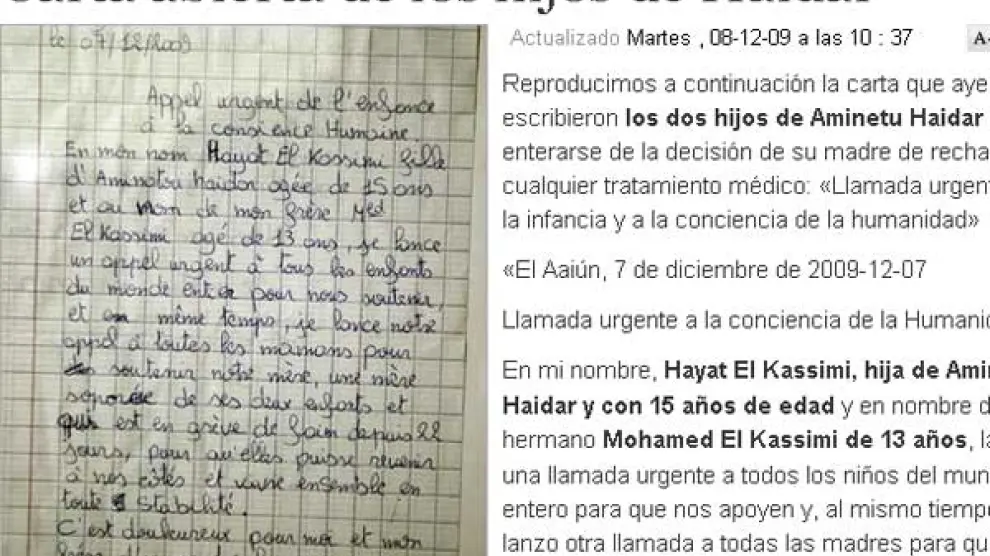 Carta abierta de los hijos de Haidar
le 07/12/2009
Appel urgent de l'enfance
à la consience Humaine
En mon nom Hayat El Kassimi fille
d'Aminatou haidar agée de 15 ans
et au Nom de mon frère Med
El Kassimi agé de 13 ans, je lance
un appel urgent à tous les enfants
du monde entier pour nous soutenir,
et en même temps, je lance notre
appel à toutes les mamans pour
soutenir notre mère, une mère
séparée de ses deux enfants et
qui est en grève de faim depuis 22
jours, pour qu'elles puisse revenir
à nos côtés et vivre ensemble en
toute Stabilité.
C'est douloureux pour moi et mon
Actualizado Martes , 08-12-09 a las 10 : 37
A-
Reproducimos a continuación la carta que aye
escribieron los dos hijos de Aminetu Haidar
enterarse de la decisión de su madre de recha
cualquier tratamiento médico: «Llamada urgent
la infancia y a la conciencia de la humanidad»
«El Aaiún, 7 de diciembre de 2009-12-07
Llamada urgente a la conciencia de la Humanid
En mi nombre, Hayat El Kassimi, hija de Amin
Haidar y con 15 años de edad y en nombre d
hermano Mohamed El Kassimi de 13 años, la
una llamada urgente a todos los niños del mun
entero para que nos apoyen y, al mismo tiempo
lanzo otra llamada a todas las madres para qu